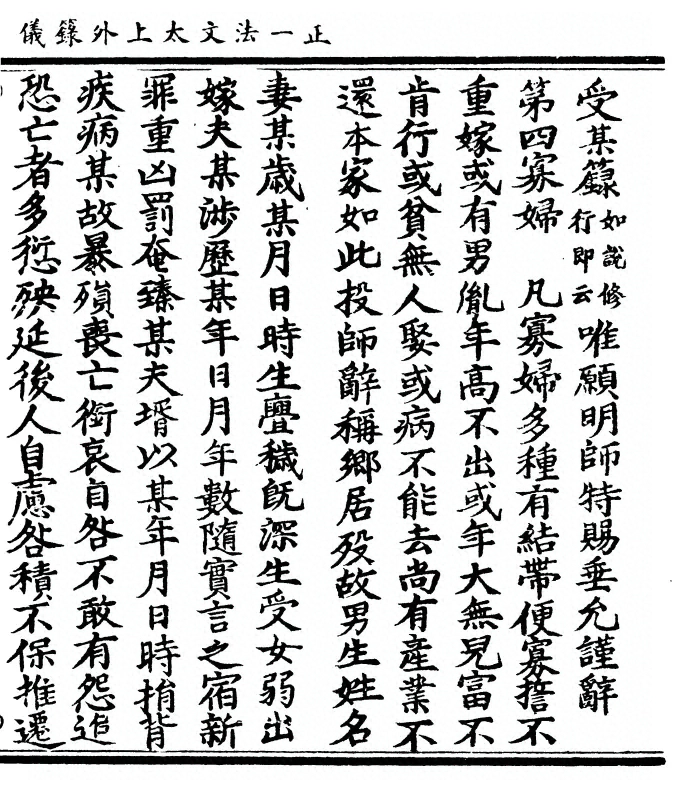 正一法文太上外籙儀
受某籙如說修行即云唯願明師特賜垂允謹辭
第四寡婦　凡寡婦多種有結帶便寡誓不
重嫁或有男胤年高不出或年大無兒富不
肯行或貧無人娶或病不能去尚有產業不
還本家如此投師辭稱鄉居歿故男生姓名
妻某歲某月日時生亹穢既深生受女弱出
嫁夫某涉歷某年日月年數隨實言之宿新
罪重凶罰奄臻某夫壻以某年月日時捐背
疾病某故暴殞喪亡銜哀自咎不敢有怨追
恐亡者多愆殃延後人自慮咎積不保推遷